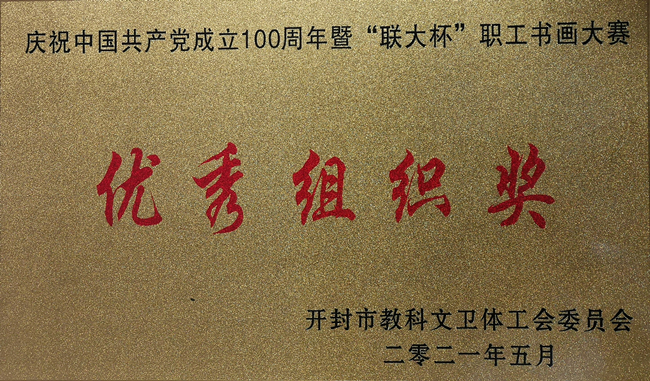 庆祝中国共产党成立100周年暨“联大杯”职工书画大赛
优秀组织奖
开封市教科文卫体工会委员会
二零二一年五月